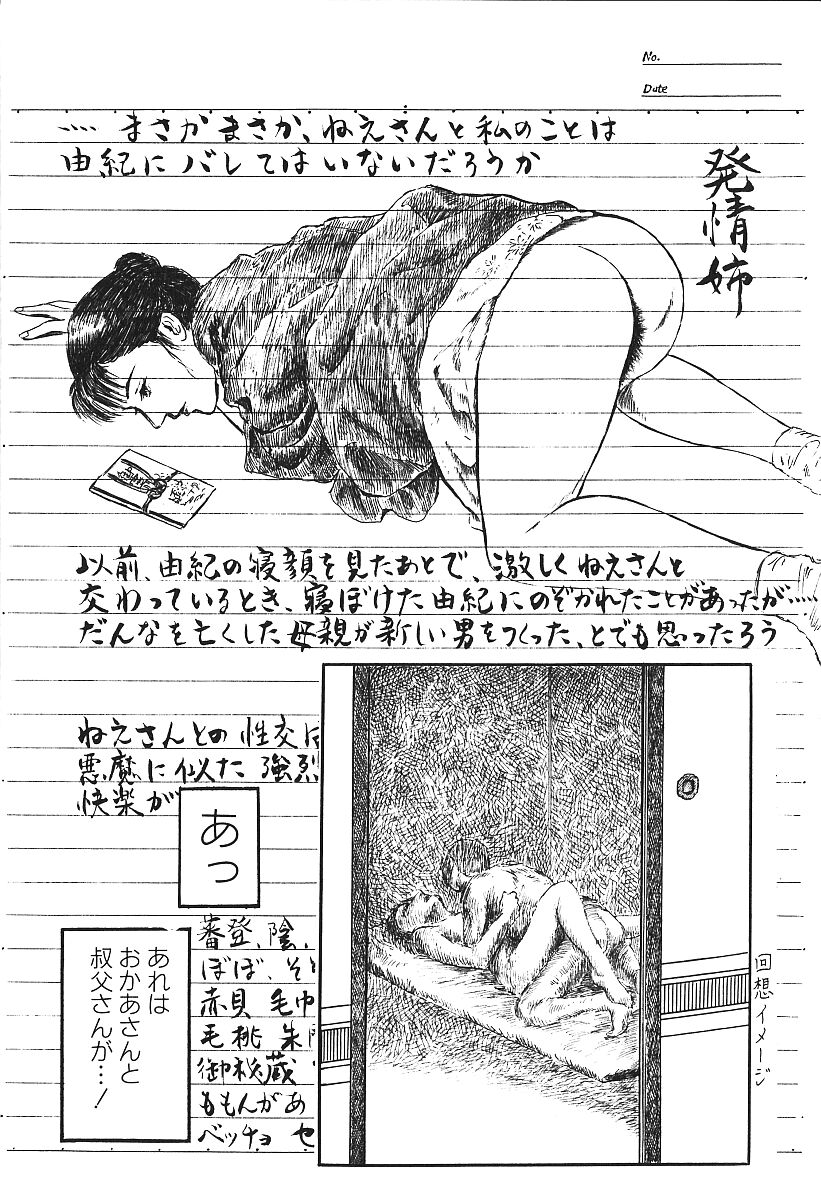 No.
Date
‥‥まさかまさか、ねえさんと私のことは
由紀にバレてはいないだろうか
発情姉
以前、由紀の寝顔を見たあとで、激しくねえさんと
交わっているとき、寝ぼけた由紀にのぞかれたことがあったが‥‥
だんなを亡くした母親が新しい男をつくった、とでも思ったろう
ねえさんとの性交は
悪魔に似た強烈
快楽が
あっ
回想イメージ
蕃登、陰、
ぼぼ、そ
赤貝 毛巾
毛桃 朱門
御秘蔵
ももんがあ
ベッチョ セ
あれは
おかあさんと
叔父さんが…！